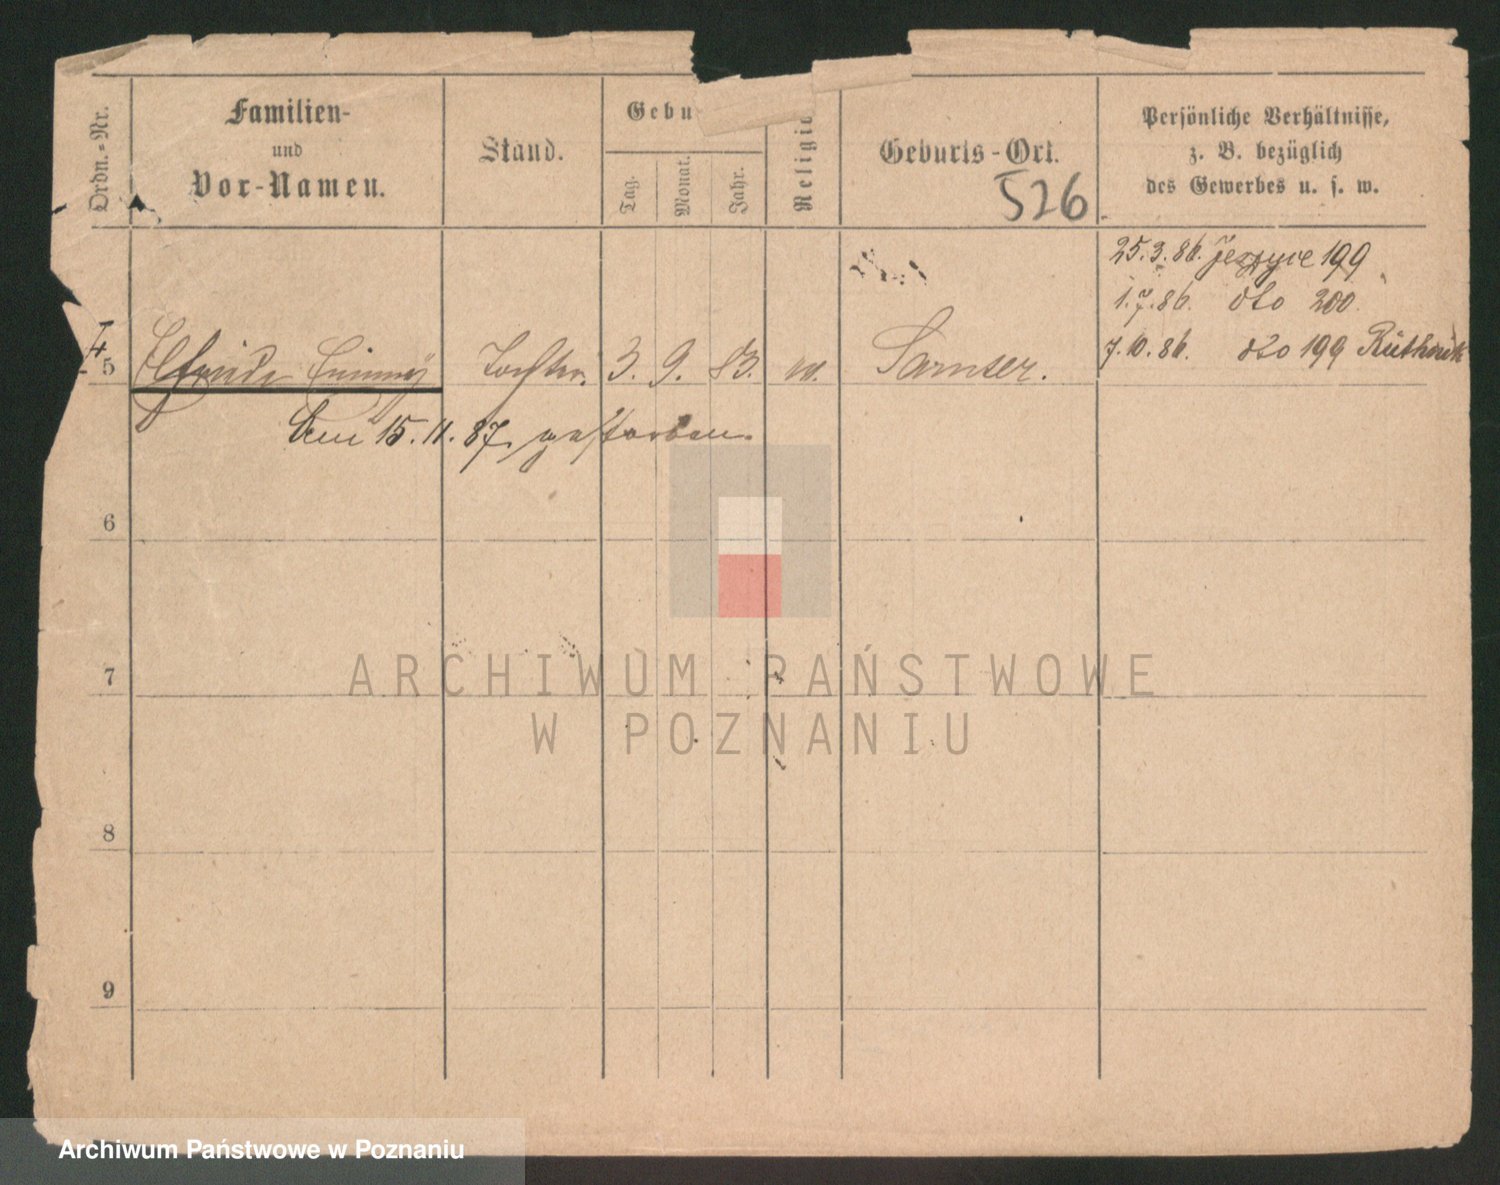 Ordn.-Nr.
Familien-
und
Vor-Namen.
Stand.
Gebu
Tag.
Monat.
Jahr.
Religio
Geburts-Ort.
526
Persönliche Verhältnisse,
z. B. bezüglich
des Gewerbes u. s. w.
25.3.86. Jerzyce 199
1.7.86. dto 200
7.10.86. dto 199
5 Elfriede Tochter. 3. 9. 83. Samter.
15.11.87. gestorben.
6
7
8
9
ARCHIWUM PAŃSTWOWE
W POZNANIU
Archiwum Państwowe w Poznaniu